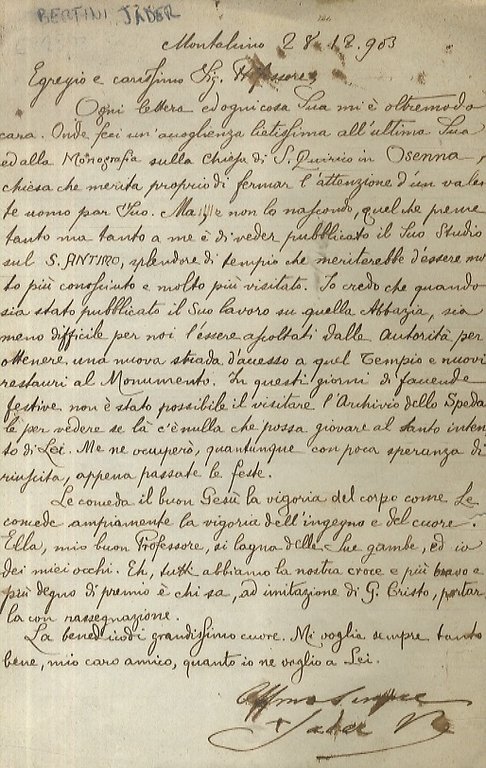 BERTINI JADER
Montalcino 28.12.903
Egregio e carissimo Sig. Professore
Ogni lettera ed ogni cosa Sua mi è oltremodo
cara. Onde feci un'accoglienza lietissima all'ultima Sua
ed alla Monografia sulla Chiesa di S. Quirico in Osenna,
chiesa che merita proprio di fermar l'attenzione d'un valen
te uomo par Suo. Ma non lo nascondo, quel che preme
tanto ma tanto a me è di veder pubblicato il Suo Studio
sul S. ANTIMO, splendore di tempio che meriterebbe d'essere mol
to più conosciuto e molto più visitato. Io credo che quando
sia stato pubblicato il Suo lavoro su quella Abbazia, sia
meno difficile per noi l'essere ascoltati dalle Autorità per
ottenere una nuova strada d'accesso a quel Tempio e nuovi
restauri al Monumento. In questi giorni di faccende
festive non è stato possibile il visitare l'Archivio dello Speda
le per vedere se là c'è nulla che possa giovare al santo inten
to di Lei. Me ne occuperò, quantunque con poca speranza di
riuscita, appena passate le feste.
Le conceda il buon Gesù la vigoria del corpo come Le
concede ampiamente la vigoria dell'ingegno e del cuore.
Ella, mio buon Professore, si lagna delle Sue gambe, ed io
dei miei occhi. Eh, tutti abbiamo la nostra croce e più bravo e
più degno di premio è chi sa, ad imitazione di G. Cristo, portar
la con rassegnazione.
La benedico di grandissimo cuore. Mi voglia sempre tanto
bene, mio caro amico, quanto io ne voglio a Lei.
Affmo sempre
+ Jader